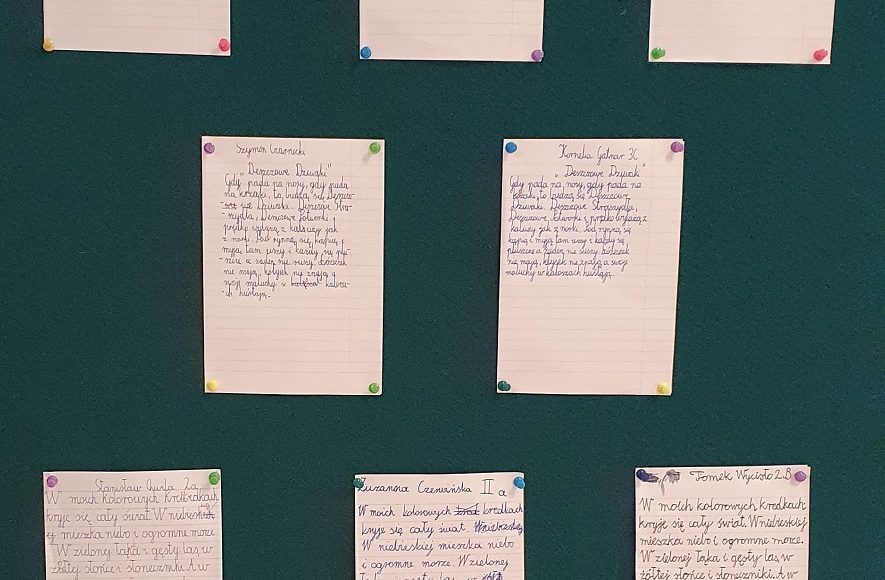 Szymon Czarnicki
„Deszczowe Dziwaki"
Gdy pada na nosy, gdy pada
na krzaki, to budzą się Deszczo-
Dziwaki. Deszczowe Stra-
szydła, Deszczowe Potworki i
prędko wyłażą z kałuży jak
z norki. Pod rynną się kąpią i
myją tam uszy i każdy się plu-
szcze a żaden nie suszy. Łóżeczek
nie mają, kołysek nie znają a
swoje maluchy w kalosza-
ch huśtają.
Kornelia Gatnar 3C
„Deszczowe Dziwaki"
Gdy pada na nosy, gdy pada na
krzaki, to budzą się Deszczowe
Dziwaki. Deszczowe Straszydła,
Deszczowe Potworki i prędko wyłażą z
kałuży jak z norki. Pod rynną się
kąpią i myją tam uszy i każdy się
pluszcze a żaden nie suszy. Łóżeczek
nie mają, kołysek nie znają a swoje
maluchy w kaloszach huśtają.
Stanisław 2a
W moich kolorowych kredkach
kryje się cały świat. W niebies
ej mieszka niebo i ogromne morze.
W zielonej łąka i gęsty las, w
żółtej słońce i słoneczniki. A w
Zuzanna Czerwińska II a
W moich kolorowych kredkach
kryje się cały świat.
W niebieskiej mieszka niebo
i ogromne morze. W zielonej
łąka i gęsty las, w
Tomek Wycisło 2.B
W moich kolorowych kredkach
kryje się cały świat. W niebieskiej
mieszka niebo i ogromne morze.
W zielonej łąka i gęsty las, w
żółtej słońce i słoneczniki. A w